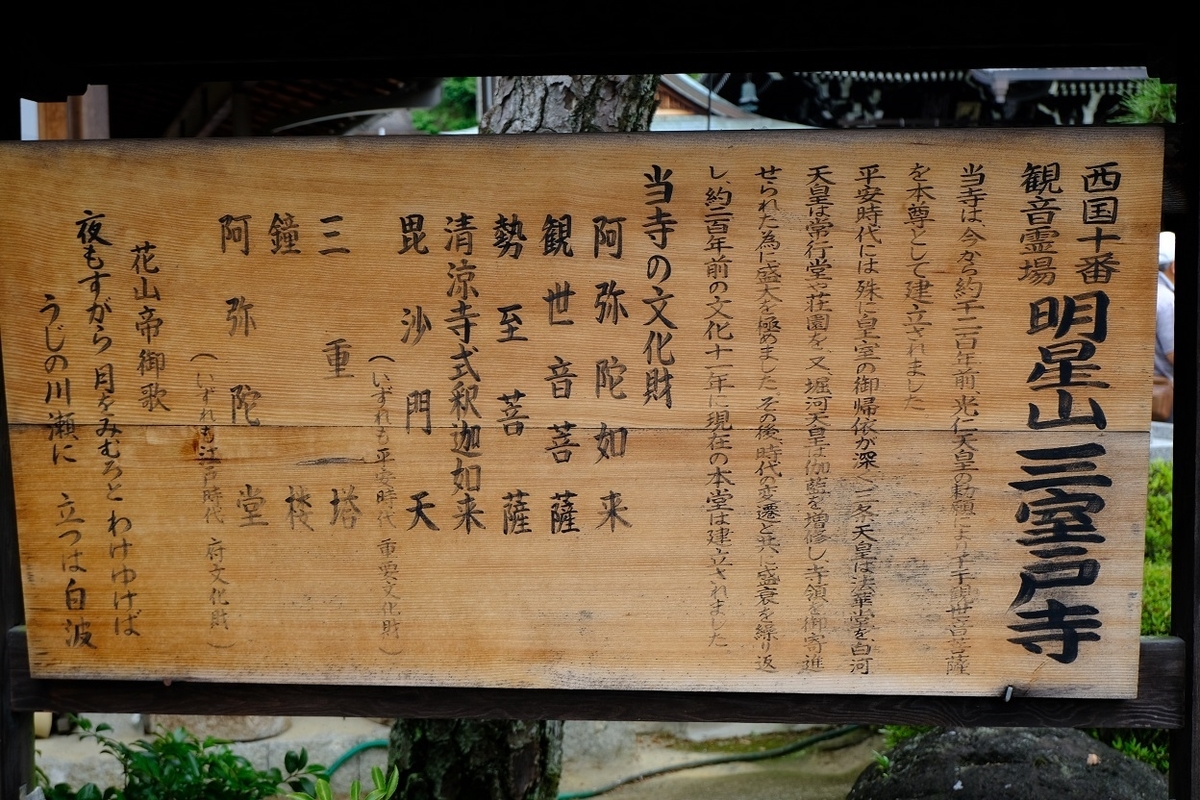 西国十番
観音霊場
明星山 三室戸寺
当寺は、今から約千二百年前、光仁天皇の勅願により千手観世音菩薩
を本尊として建立されました
平安時代には殊に皇室の御帰依が深く三条天皇は法華堂を、白河
天皇は常行堂や荘園を、又、堀河天皇は伽藍を増修し、寺領を御寄進
せられた為に盛大を極めました、その後、時代の変遷と共に盛衰を繰り返
し、約二百年前の文化十一年に現在の本堂は建立されました
当寺の文化財
阿弥陀如来
観世音菩薩
勢至菩薩
清涼寺式釈迦如来
毘沙門天
(いずれも平安時代 重要文化財)
三重塔
鐘楼
阿弥陀堂
(いずれも江戸時代 府文化財)
花山帝御歌
夜もすがら 月をみむろと わけゆけば
うじの川瀬に 立つは白波